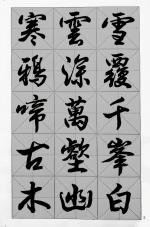 雪覆千峯白
雲深萬壑幽
寒鴉啼古木